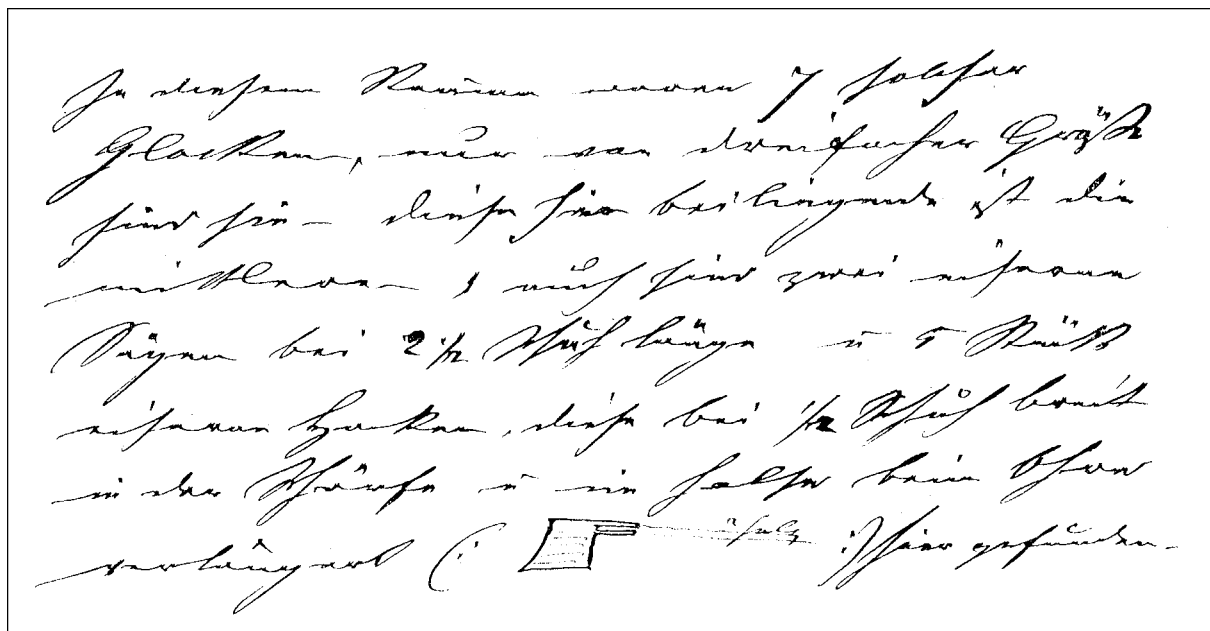 In diesem Raume waren 7 solcher
Glocken, nur von dreifacher Größe
sind sie – diese hier beiliegende ist die
mittlere – , auch sind zwei eiserne
Sägen bei 2 1/2 Schuh länge u 5 Stück
eiserne Hacken, diese bei 1/2 Schuh breit
in der Schärfe u ein solche beim Öhre
verlängert (: Holz :) hier gefunden –